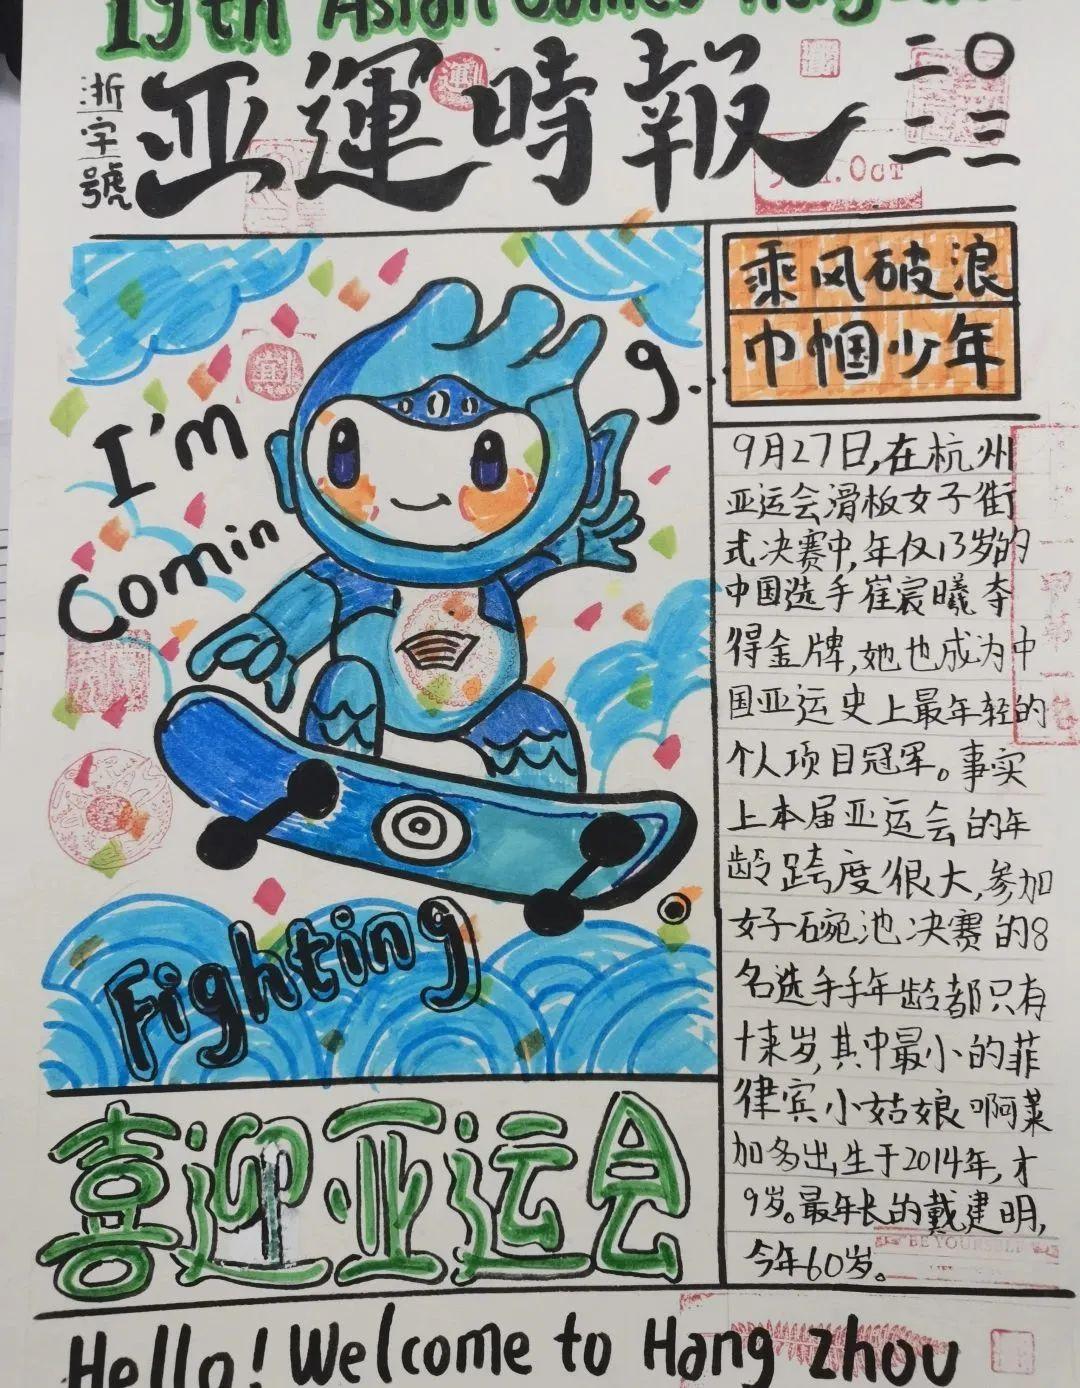 19th Asian Games
亚運時報
浙字號
二〇
二三
Oct
乘风破浪
巾帼少年
I'm
Comin
g.
Fighting
9月27日,在杭州
亚运会滑板女子街
式决赛中,年仅13岁的
中国选手崔宸曦夺
得金牌,她也成为中
国亚运史上最年轻的
个人项目冠军。事实
上本届亚运会的年
龄跨度很大,参加
女子碗池决赛的8
名选手年龄都只有
十来岁,其中最小的菲
律宾小姑娘啊莱
加多出生于2014年,才
9岁。最年长的戴建明,
今年60岁。
BE YOURSELF
喜迎亚运会
Hello! Welcome to Hang zhou